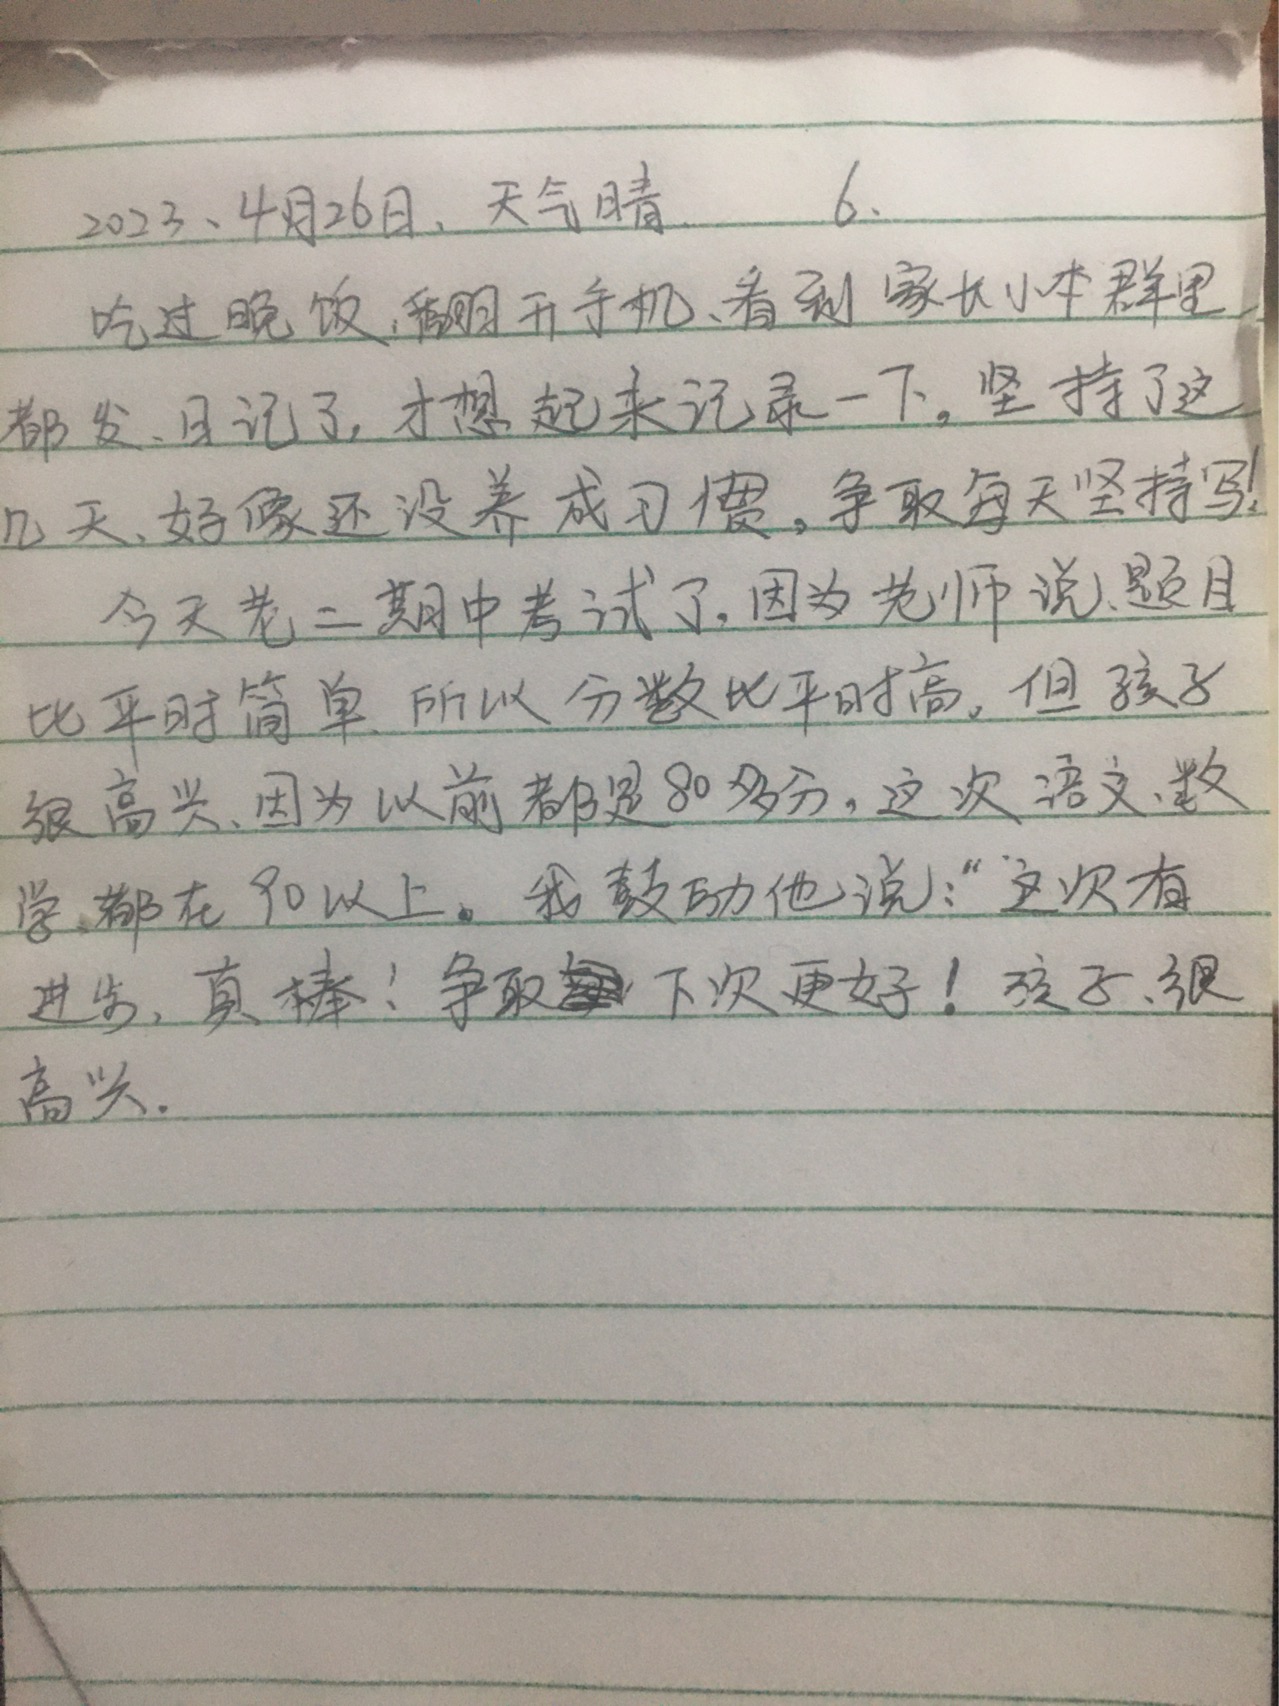 2023、4月26日、天气晴 6、
吃过晚饭，翻开手机、看到家长小本群里
都发、日记了，才想起来记录一下。坚持了这
几天、好像还没养成习惯。争取每天坚持写！
今天老二期中考试了，因为老师说、题目
比平时简单、所以分数比平时高。但孩子
很高兴、因为以前都是80多分，这次语文、数
学、都在90以上。我鼓励他说：“这次有
进步，真棒！争取下次更好！孩子、很
高兴.